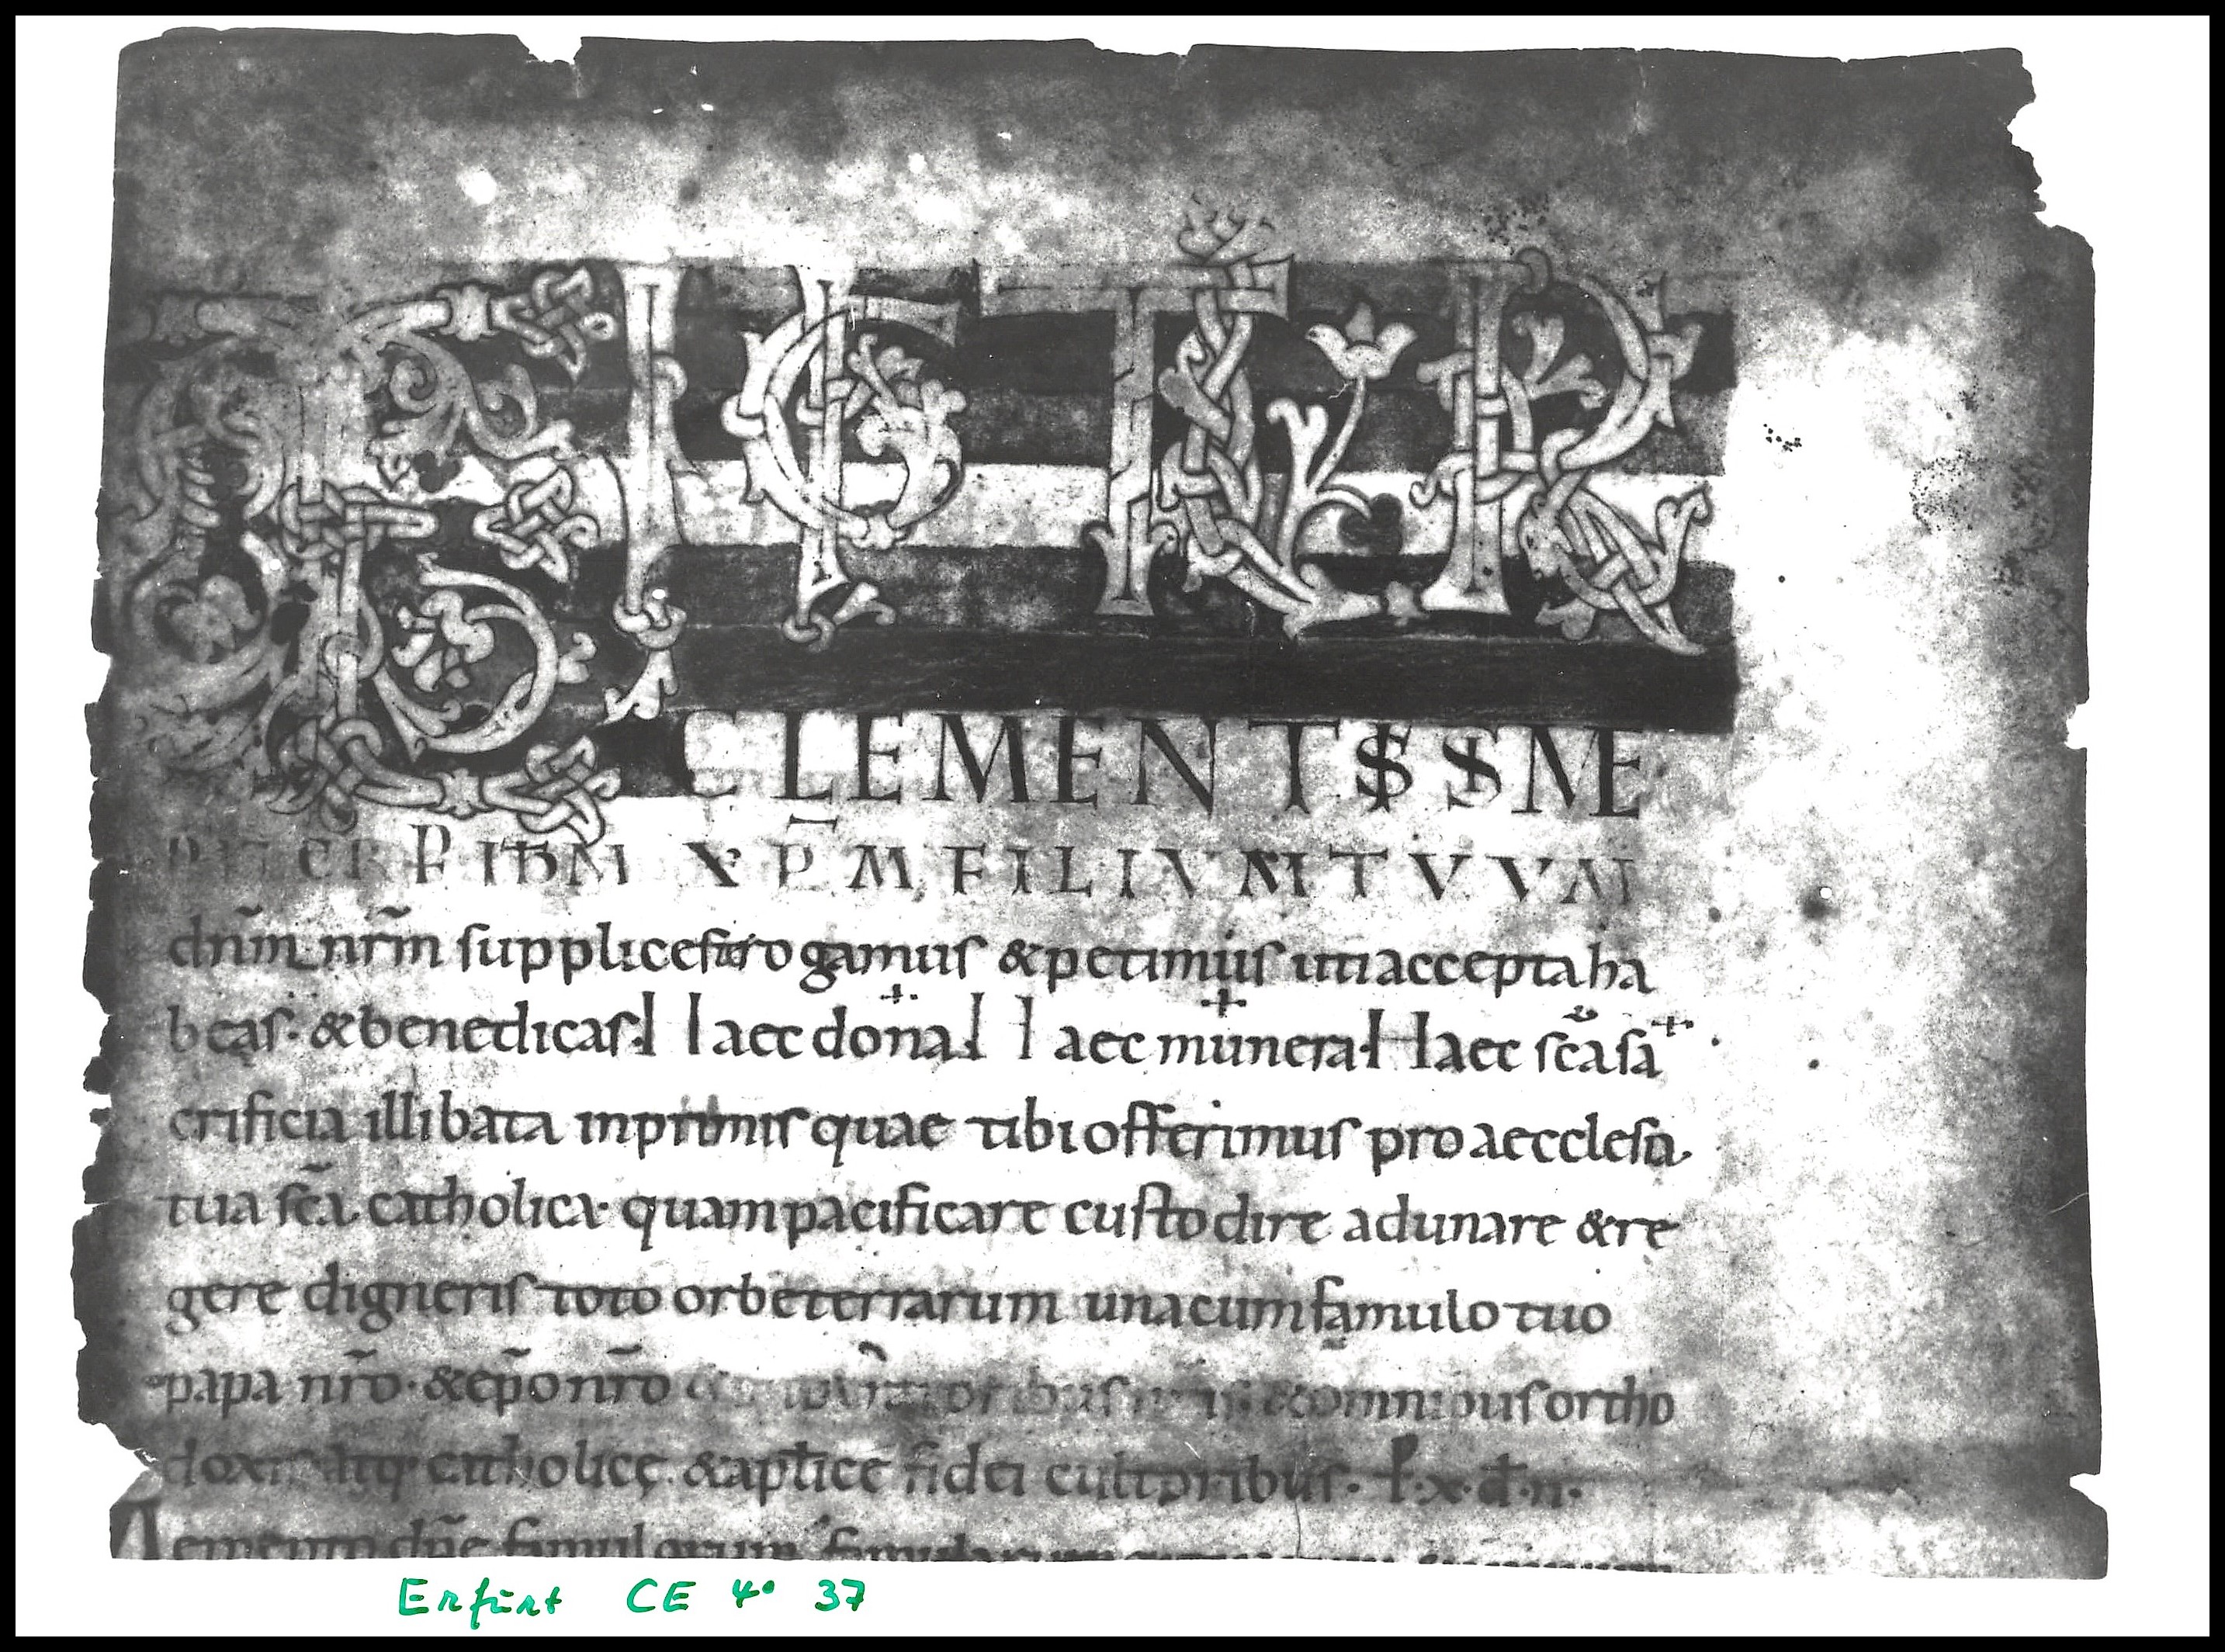 TE IGITUR
CLEMENTISSIME
PATER P IHM XPM FILIVM TVVM
dnm nrm supplices rogamus & petimus uti accepta ha
beas · & benedicas · Haec dona · Haec munera · Haec sca sa
crificia illibata inprimis quae tibi offerimus pro aecclesia
tua sca catholica · quam pacificare custodire adunare & re
gere digneris toto orbe terrarum una cum famulo tuo
papa nro · & epo nro & omnibus ortho
doxis atq · catholicę · & aplice fidei cultoribus · P · x · d · n ·
Memento dne famulorum famularum
Erfurt CE 4° 37